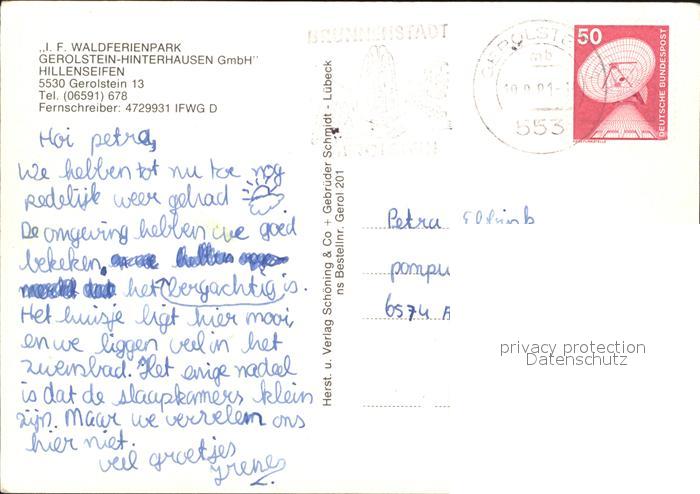 „I. F. WALDFERIENPARK
GEROLSTEIN-HINTERHAUSEN GmbH"
HILLENSEIFEN
5530 Gerolstein 13
Tel. (06591) 678
Fernschreiber: 4729931 IFWG D
Hoi petra,
We hebben tot nu toe nog
redelijk weer gehad
De omgeving hebben we goed
bekeken,
het bergachtig is.
Het huisje ligt hier mooi
en we liggen veel in het
zwembad. Het enige nadeel
is dat de slaapkamers klein
zijn. Maar we vervelen ons
hier niet.
veel groetjes
Irene
Herst. u. Verlag Schöning & Co + Gebrüder Schmidt - Lübeck
ns Bestellnr. Gerol 201
BRUNNENSTADT
GEROLSTE
mb
553
50
DEUTSCHE BUNDESPOST
Petra
pompu
6574 A
privacy protection
Datenschutz